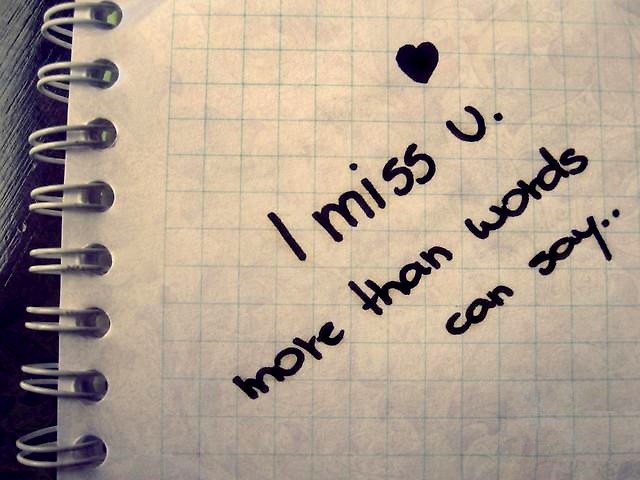 I miss U.
more than words
can say..